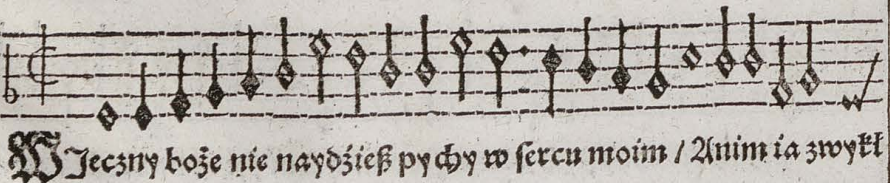 WJeczny boże nie naydźieß pychy w sercu moim / Anim ia zwykł